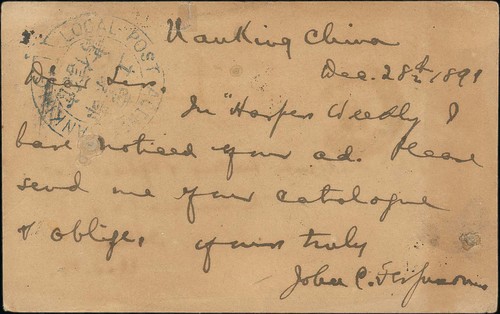 Nanking China
Dec. 28th 1891
LOCAL POST
Dear Sir.
In "Harpers Weekly I
have noticed your ad. Please
send me your catalogue
& oblige, yours truly
John C. Ferguson